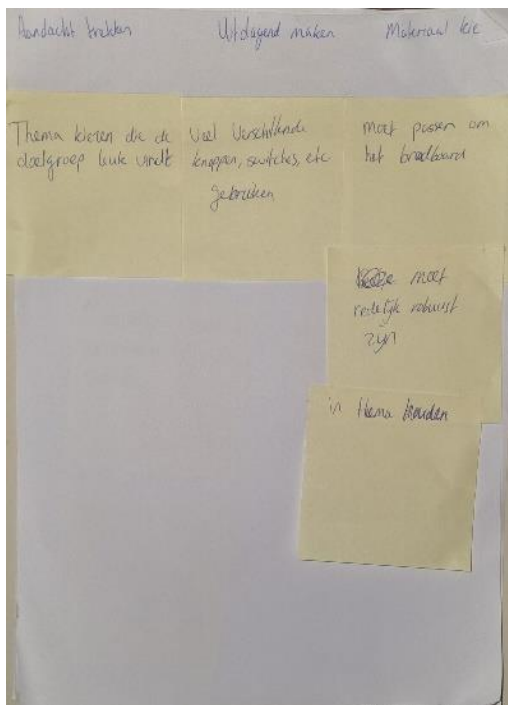 Aandacht trekken
Uitdagend maken
Materiaal
Thema kiezen die de
doelgroep leuk vindt
Veel verschillende
knoppen, switches, etc
gebruiken
moet passen om
het breadboard
moet
redelijk robuust
zijn
in thema houden